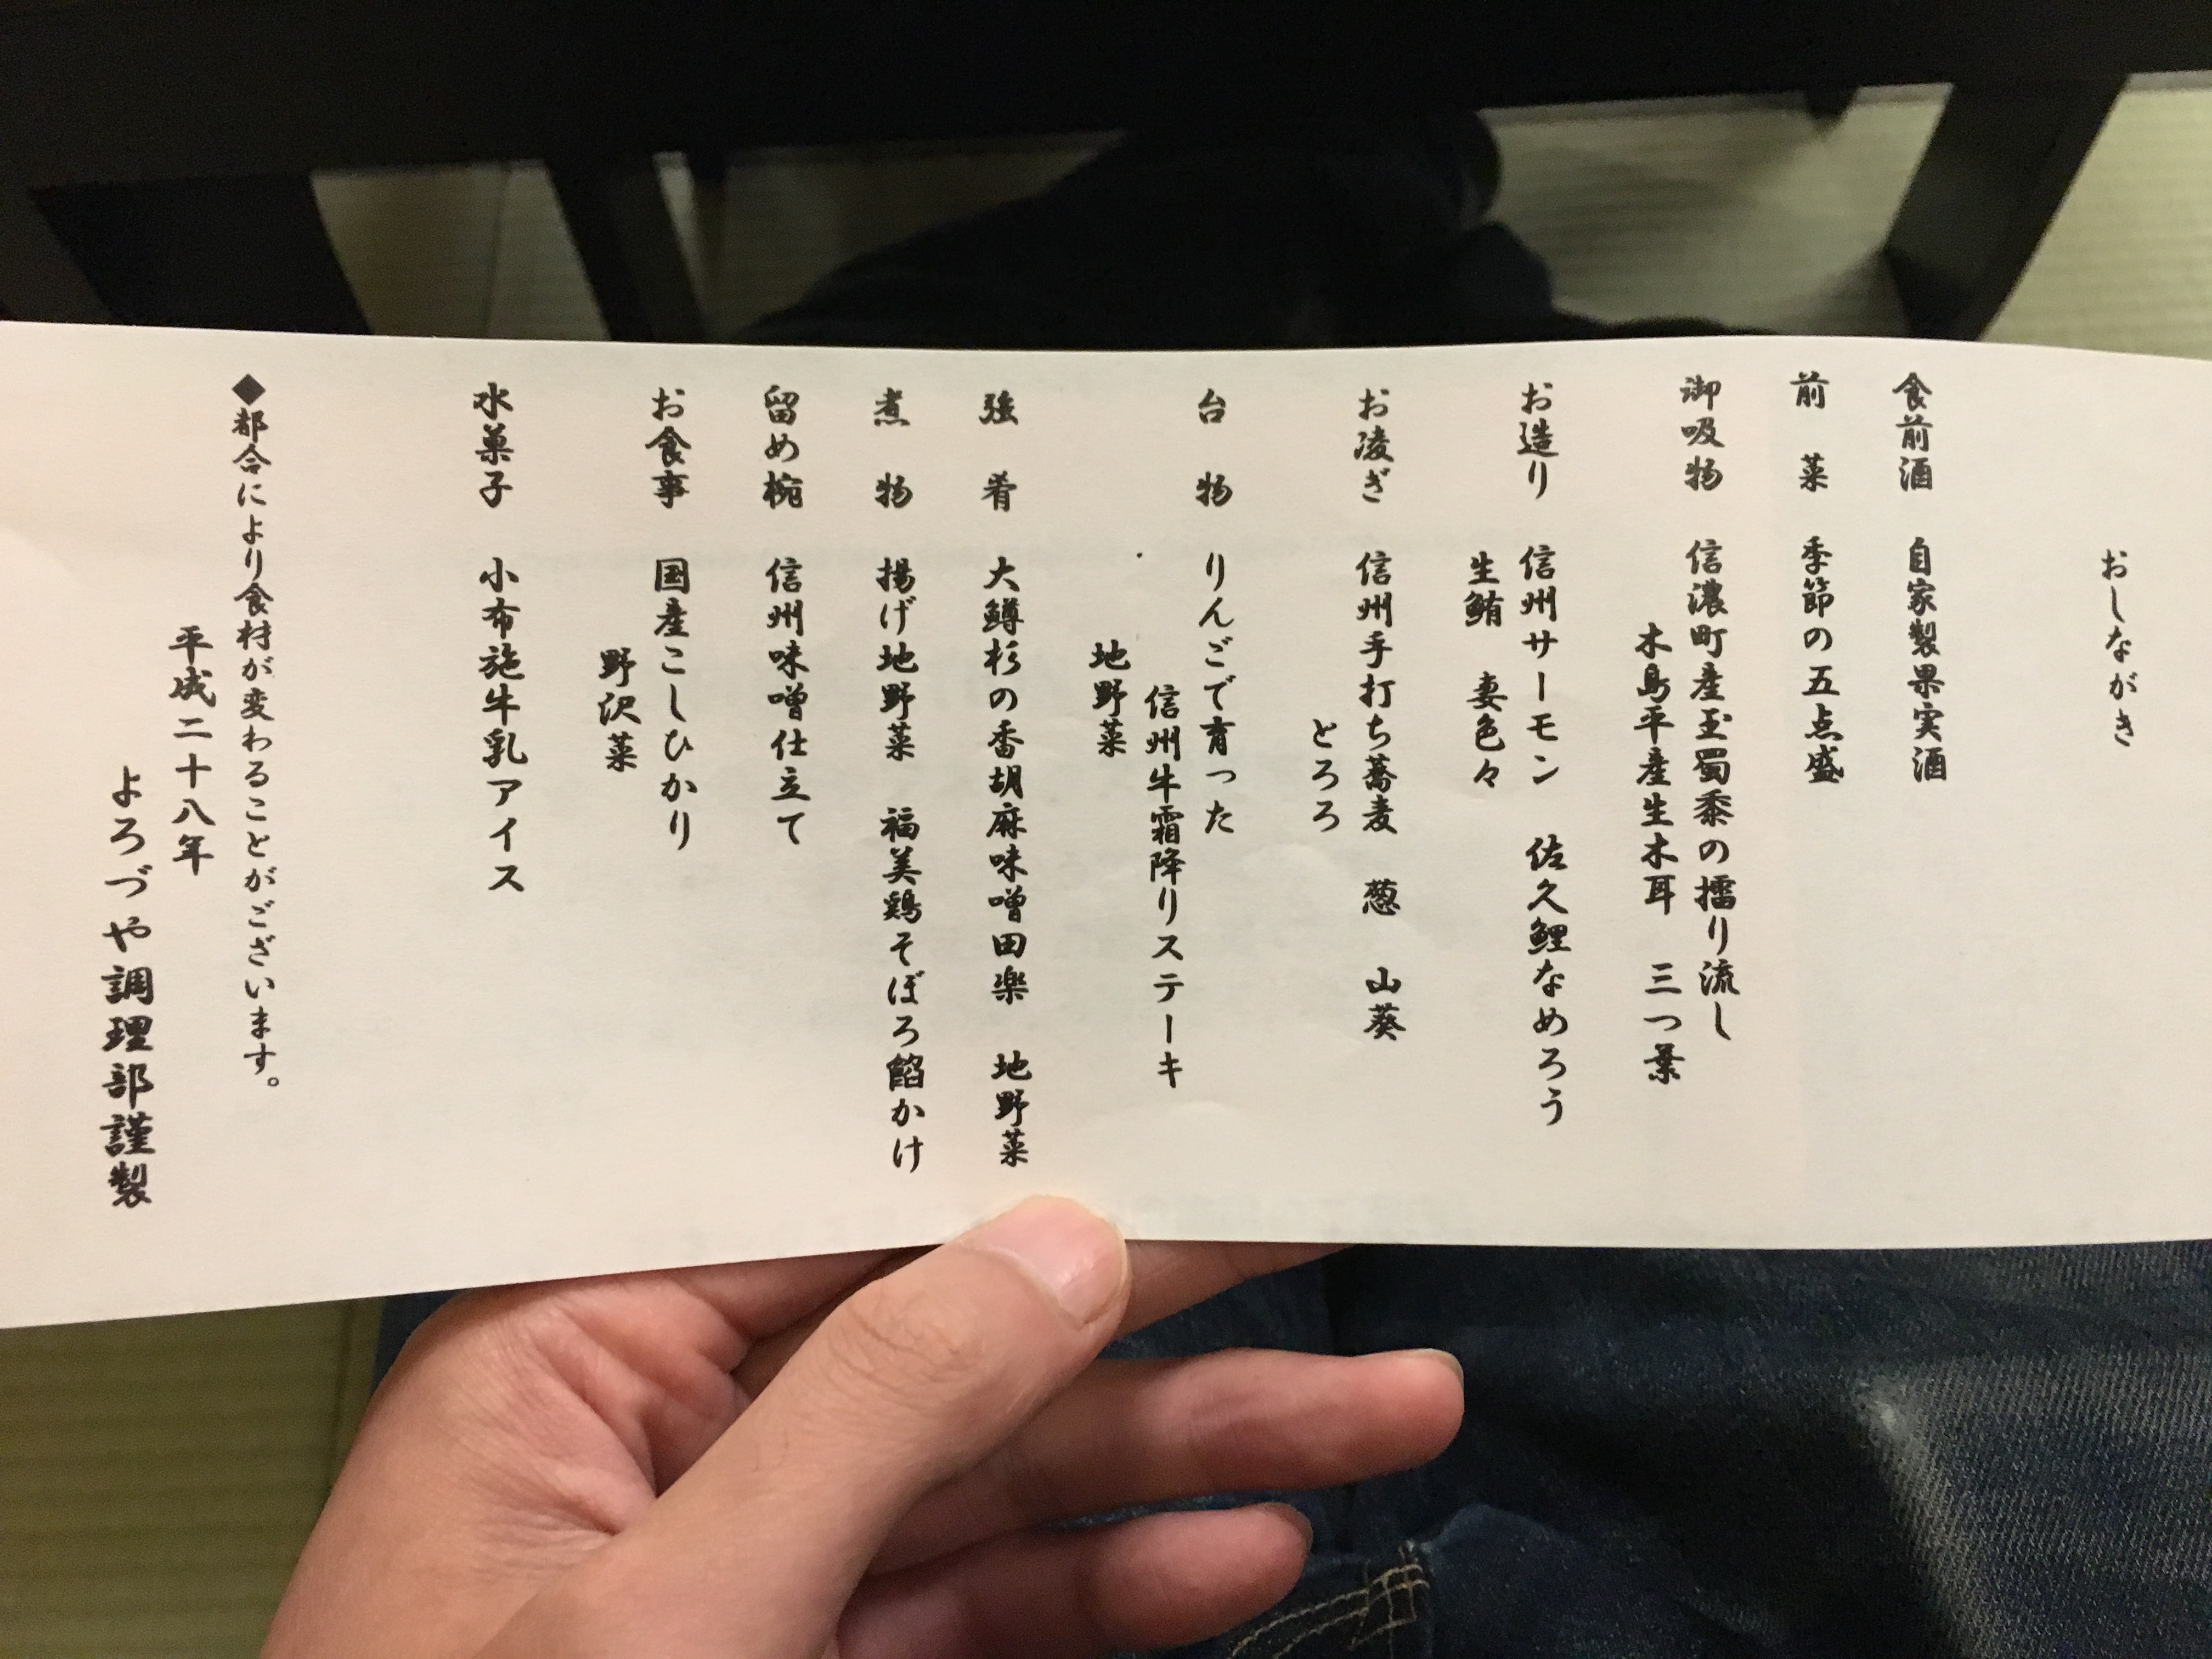 おしながき
食前酒　自家製果実酒
前　菜　季節の五点盛
御吸物　信濃町産玉蜀黍の擂り流し
木島平産生木耳　三つ葉
お造り　信州サーモン　佐久鯉なめろう
生鮪　妻色々
お凌ぎ　信州手打ち蕎麦　葱　山葵
とろろ
台　物　りんごで育った
信州牛霜降りステーキ
地野菜
強　肴　大鱒杉の香胡麻味噌田楽　地野菜
煮　物　揚げ地野菜　福美鶏そぼろ餡かけ
留め椀　信州味噌仕立て
お食事　国産こしひかり
野沢菜
水菓子　小布施牛乳アイス
◆都合により食材が変わることがございます。
平成二十八年
よろづや調理部謹製